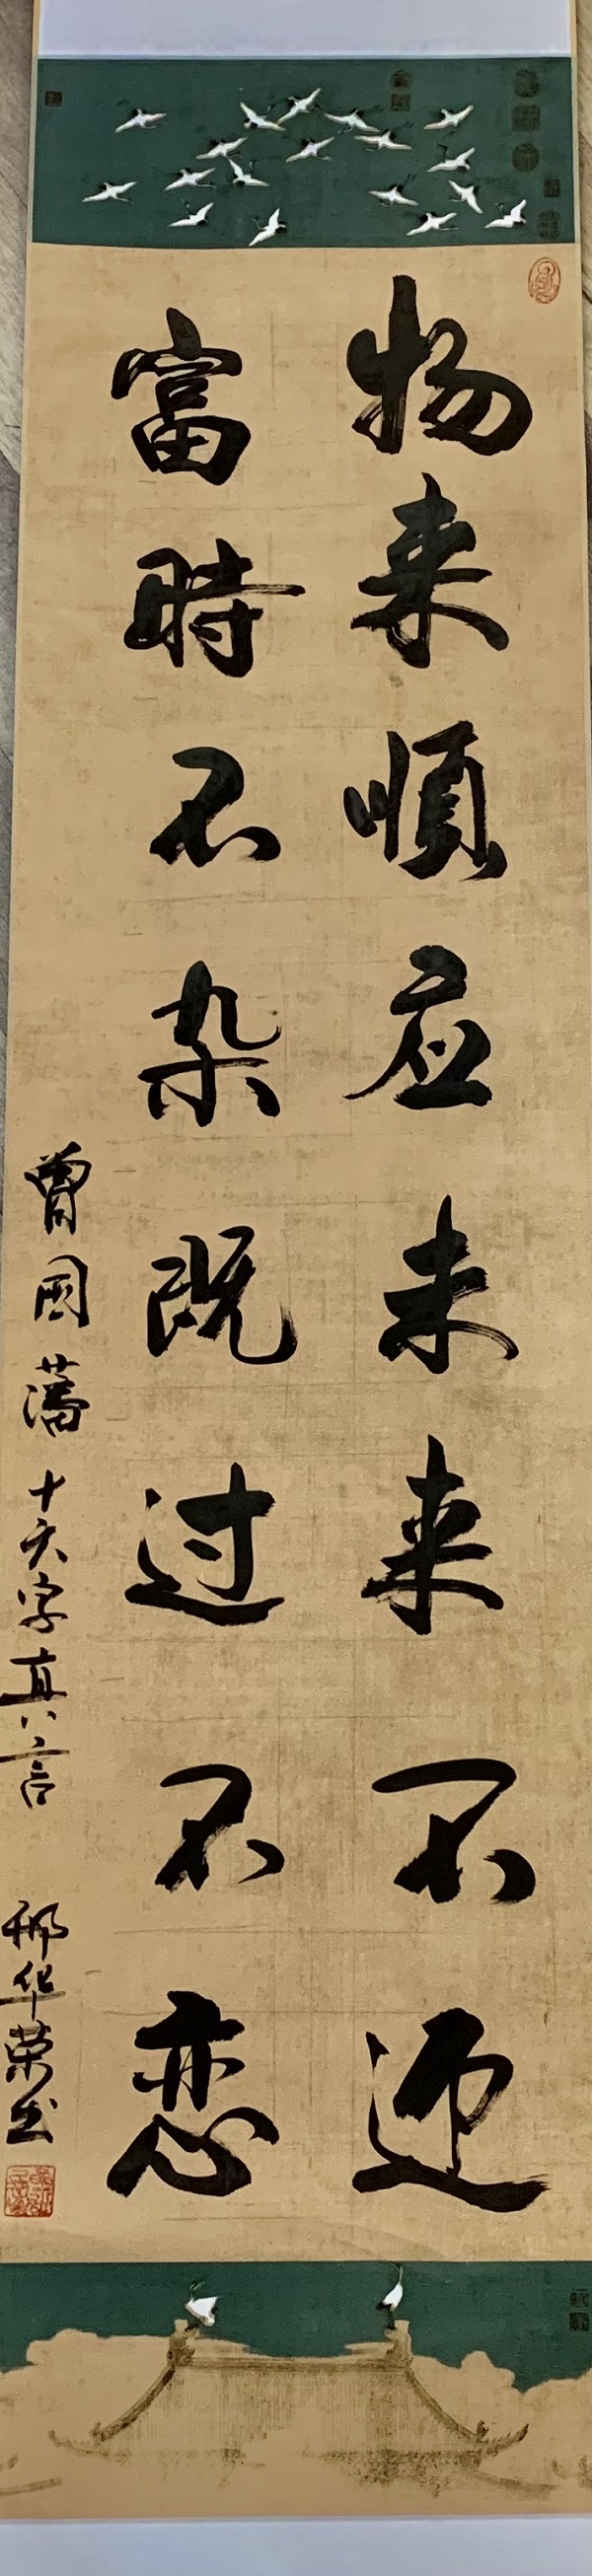 物来順应未来不迎
當時不杂既过不恋
曾国藩十六字真言 邢华荣书